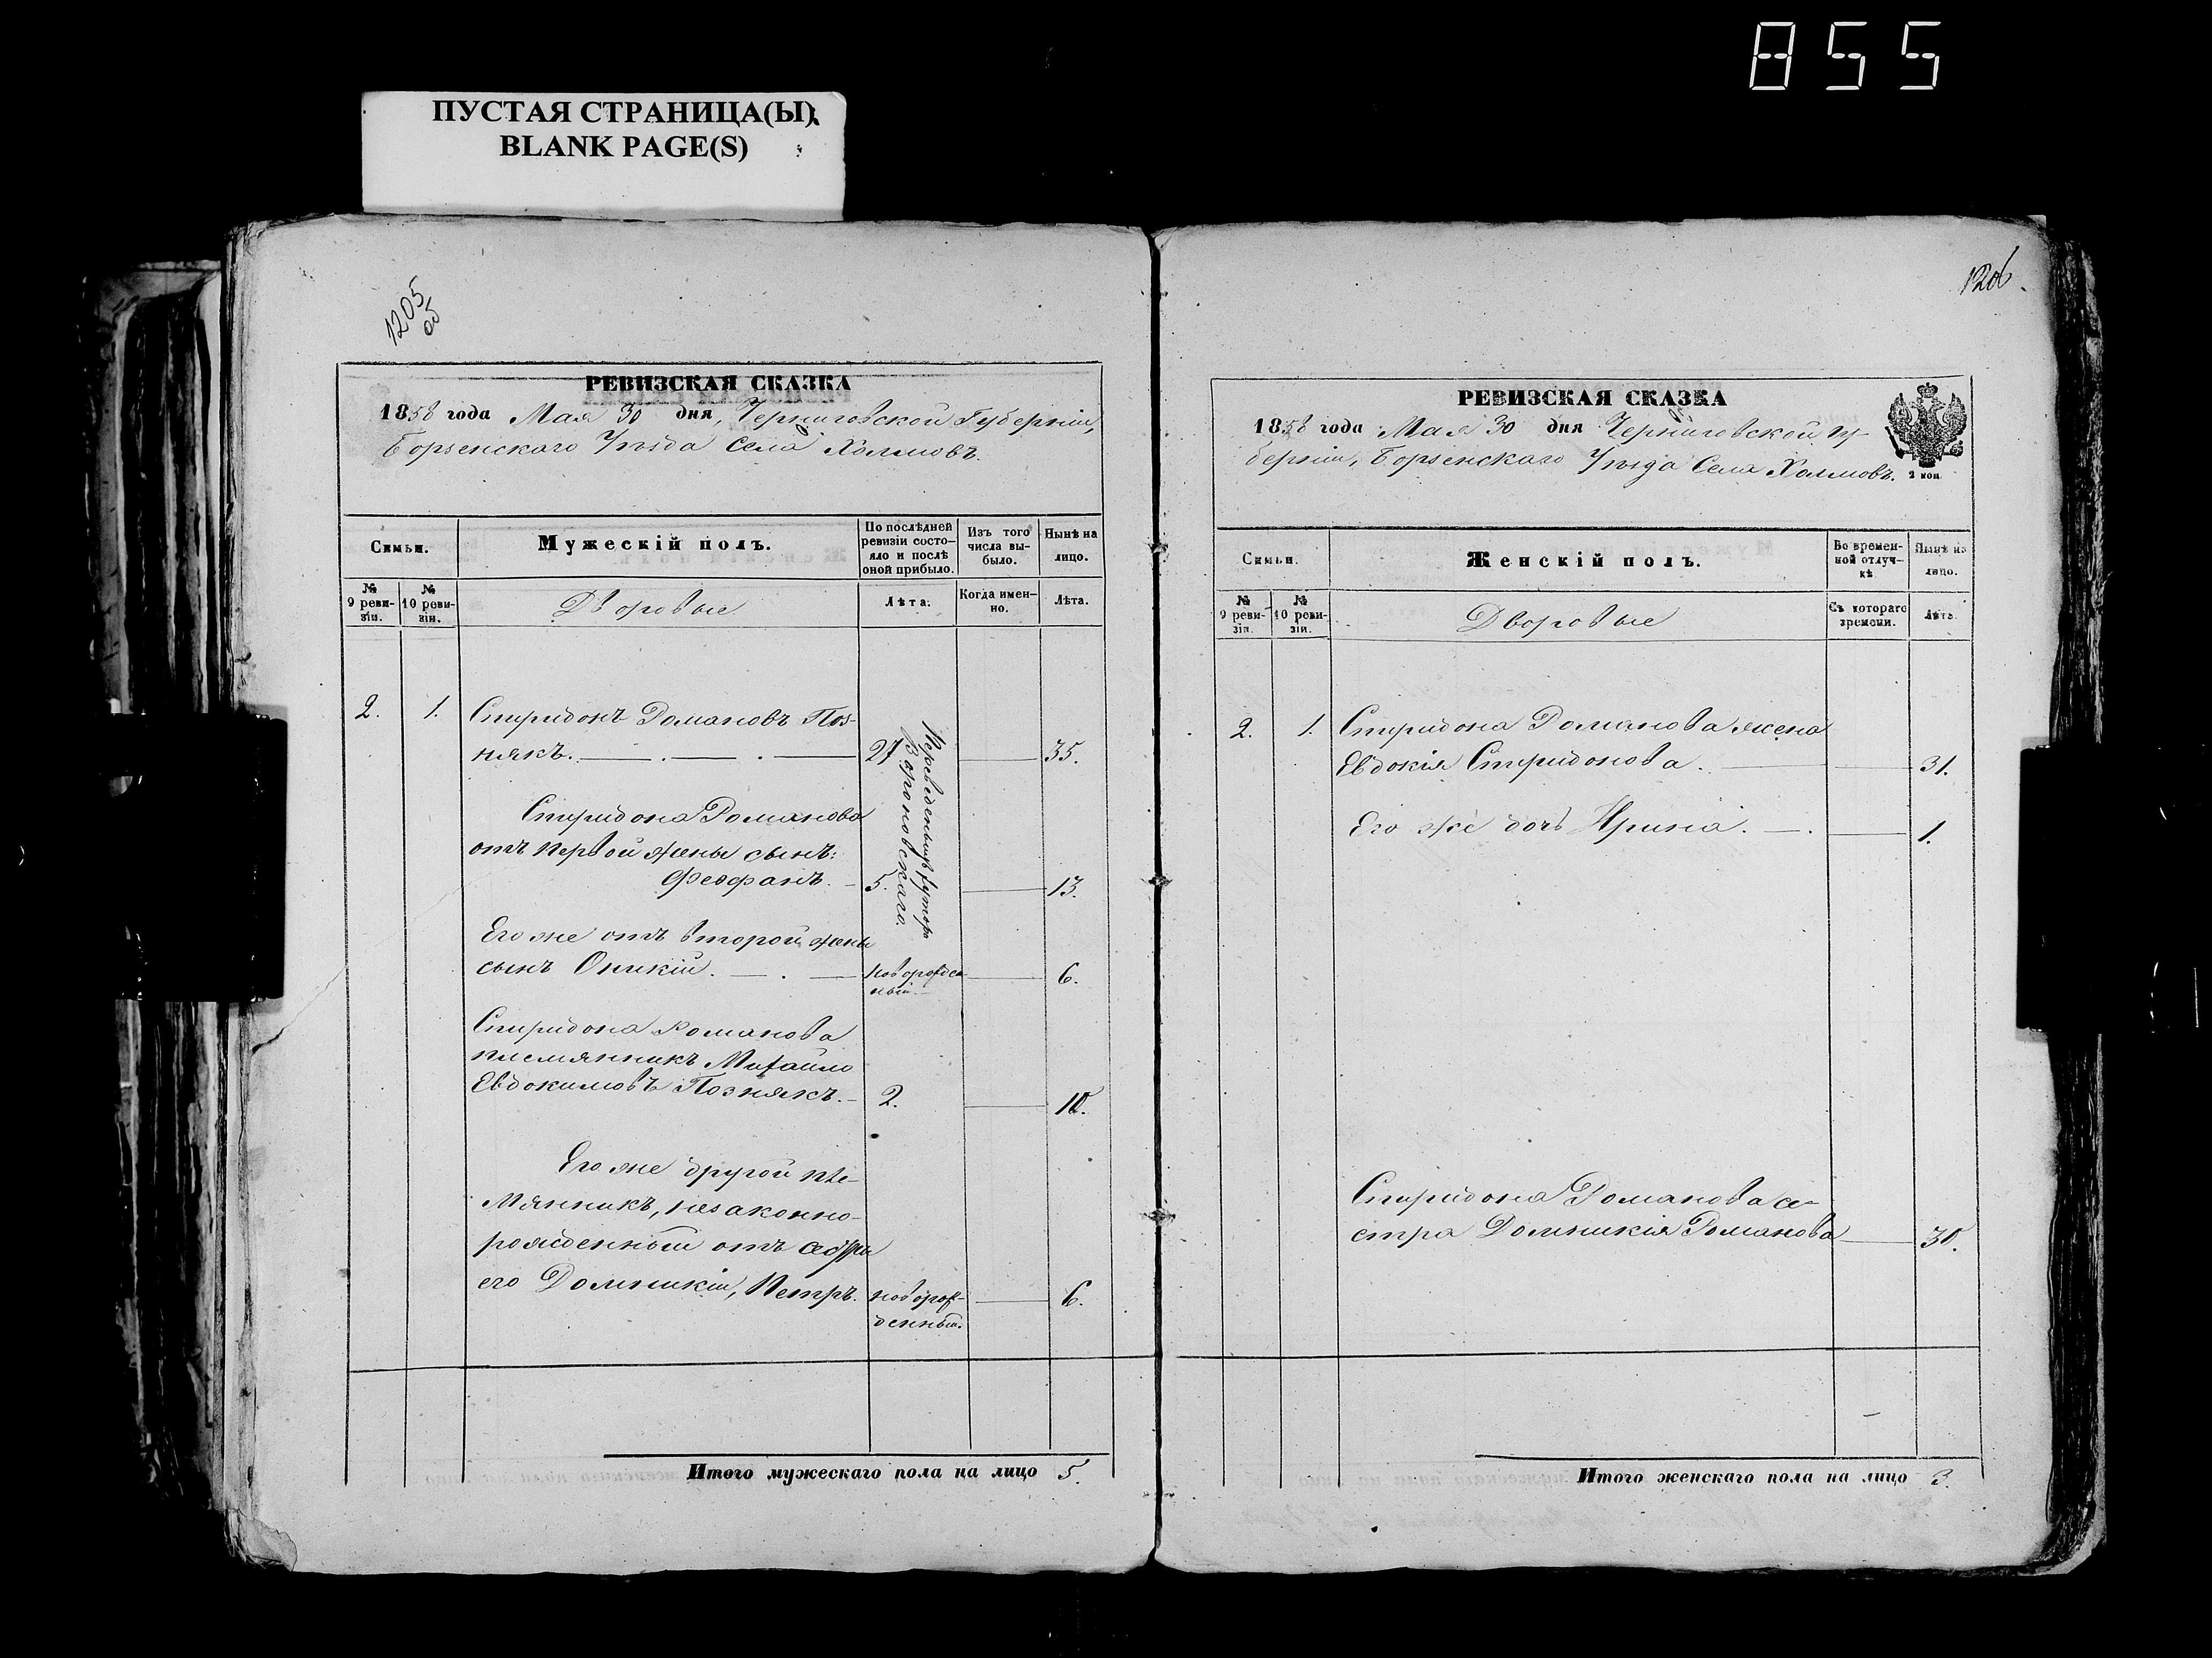 855
ПУСТАЯ СТРАНИЦА(Ы)
BLANK PAGE(S)
1205
об
РЕВИЗСКАЯ СКАЗКА
1858 года Мая 30 дня, Черниговской Губерніи,
Борзенскаго Уѣзда Села Холмовъ.
Симьи.
Мужескій полъ.
По послѣдней
ревизіи состо-
яло и послѣ
оной прибыло.
Изъ того
числа вы-
было.
Нынѣ на
лицо.
№
9 реви-
зіи.
№
10 реви-
зіи.
Дворовые
Лѣта.
Когда имен-
но.
Лѣта.
2. 1. Спиридонъ Романовъ Поз-
някъ. 27 35.
Спиридона Романова
отъ первой жены сынъ:
Феофанъ. 5. 13.
хутора
Вороновскаго.
Его же отъ второй жены
сынъ Оникій. новорожден 6.
ный.
Спиридона Романова
племянникъ Михайло
Евдокимовъ Познякъ. 2. 10.
Его же другой пле-
мянникъ, незаконно-
рожденный отъ сестры
его Домникіи, Петръ. новорож- 6.
денный.
Итого мужескаго пола на лицо 5.
1206.
РЕВИЗСКАЯ СКАЗКА
1858 года Мая 30 дня Черниговской Гу-
берніи, Борзенскаго Уѣзда Села Холмовъ.
2 коп.
Симьи.
Женскій полъ.
Во времен-
ной отлуч-
кѣ
Нынѣ на
лицо.
№
9 реви-
зіи.
№
10 реви-
зіи.
Дворовые
Съ котораго
времени.
Лѣта.
2. 1. Спиридона Романова жена
Евдокія Спиридонова. 31.
Его же дочь Ирина. 1.
Спиридона Романова се-
стра Домникія Романова 30.
Итого женскаго пола на лицо 3.